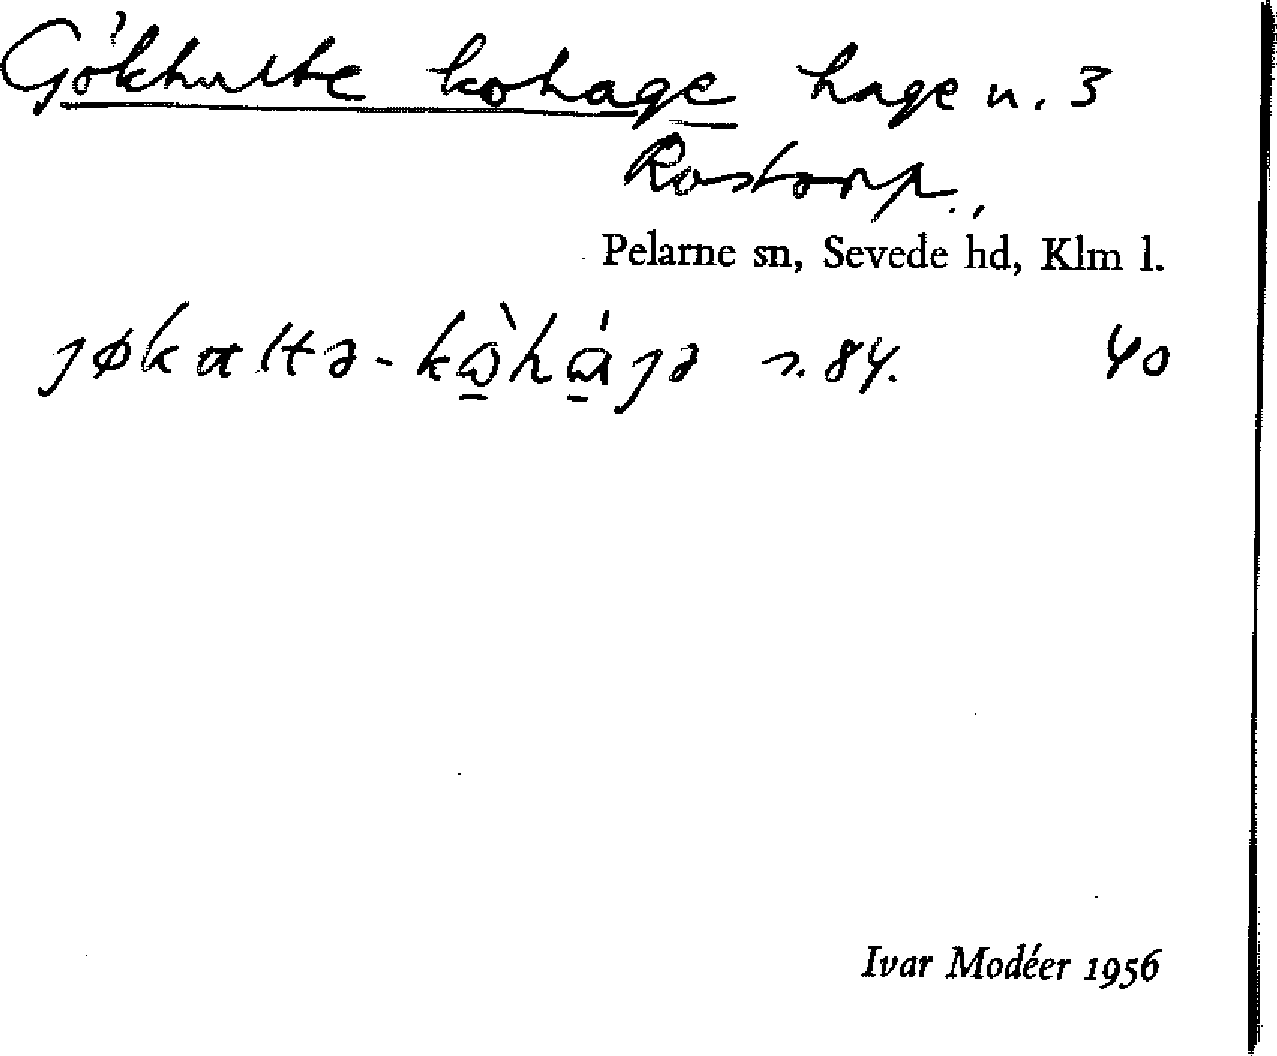 Gökhulte kohage hage n. 3
Rostorp.,
Pelarne sn, Sevede hd, Klm l.
s. 84. 40
Ivar Modéer 1956